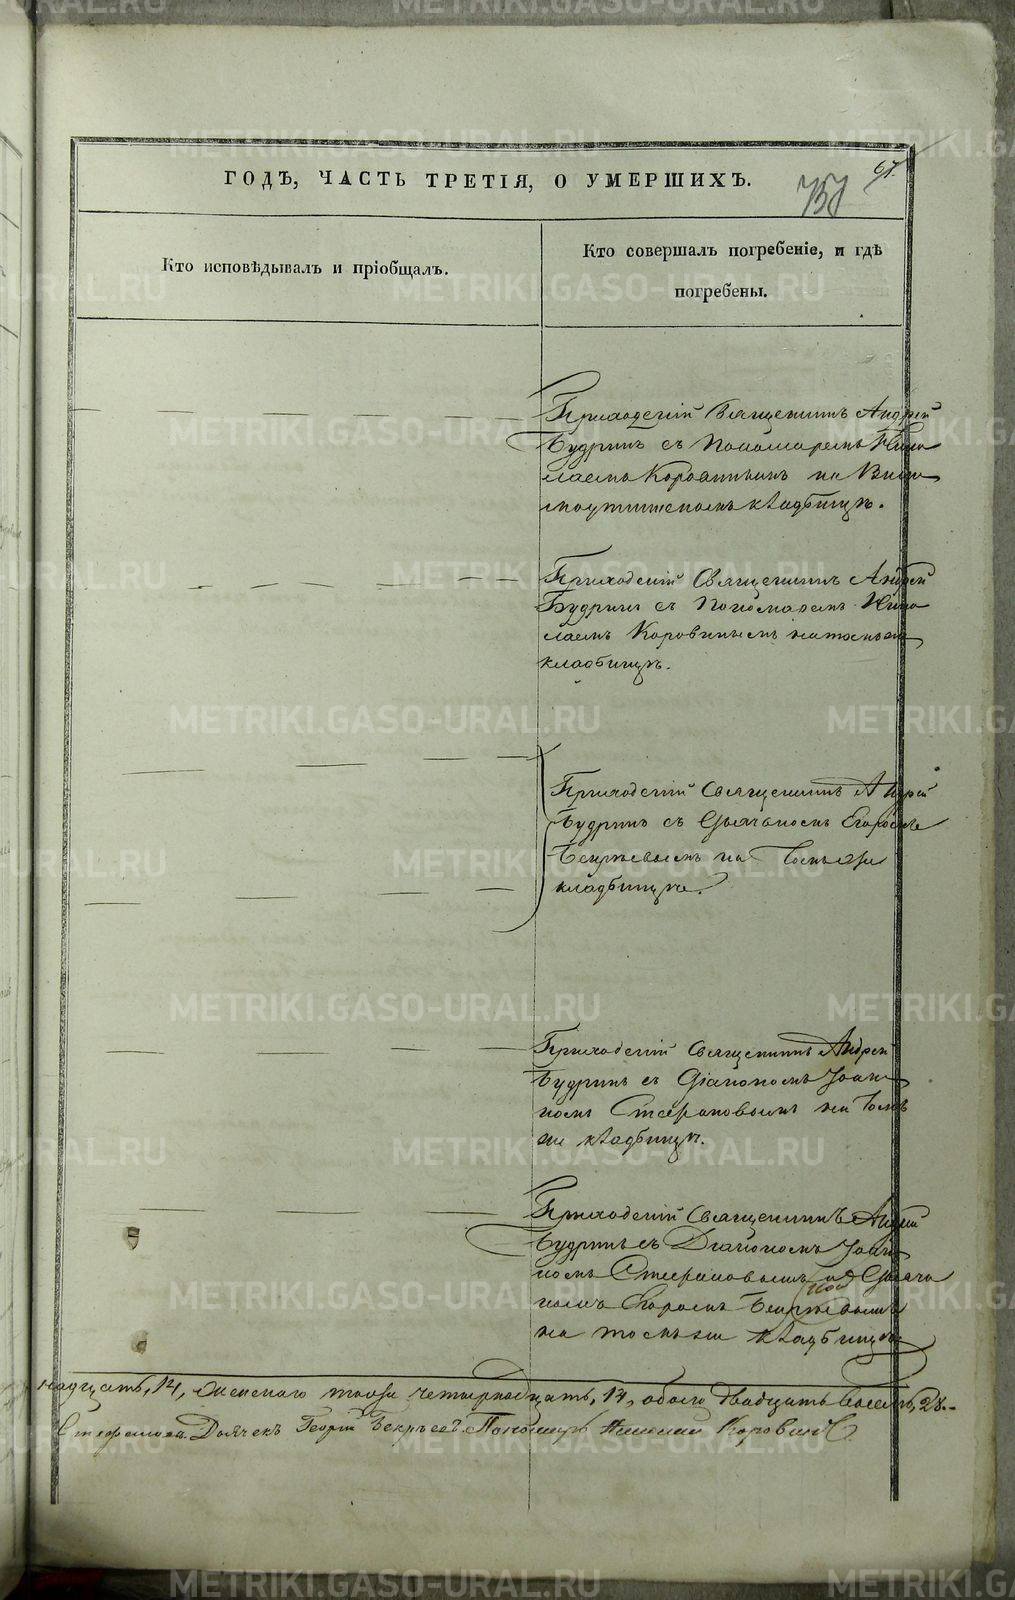 ГОДЪ, ЧАСТЬ ТРЕТІЯ, О УМЕРШИХЪ.
757
67.
Кто исповѣдывалъ и пріобщалъ.
Кто совершалъ погребеніе, и гдѣ
погребены.
Приходскій Священникъ Андрей
Будринъ съ Пономаремъ Нико
лаемъ Коровинымъ на
кладбищѣ.
Приходскій Священникъ Андрей
Будринъ съ Пономаремъ Нико
лаемъ Коровинымъ на томъ же
кладбищѣ.
Приходскій Священникъ Андрей
Будринъ съ Дьячкомъ Егоромъ
на томъ же
кладбищѣ.
Приходскій Священникъ Андрей
Будринъ съ Діакономъ Іоан
номъ Стефановымъ на томъ
же кладбищѣ.
Приходскій Священникъ Андрей
Будринъ съ Діакономъ Іоан
номъ Стефановымъ и Дьяч
комъ Егоромъ
на томъ же кладбищѣ
надцать, 14, женскаго тоже четырнадцать, 14, обоего двадцать восемь, 28.
Стефановъ Дьячекъ Георгій Пономарь Николай Коровинъ
METRIKI.GASO-URAL.RU